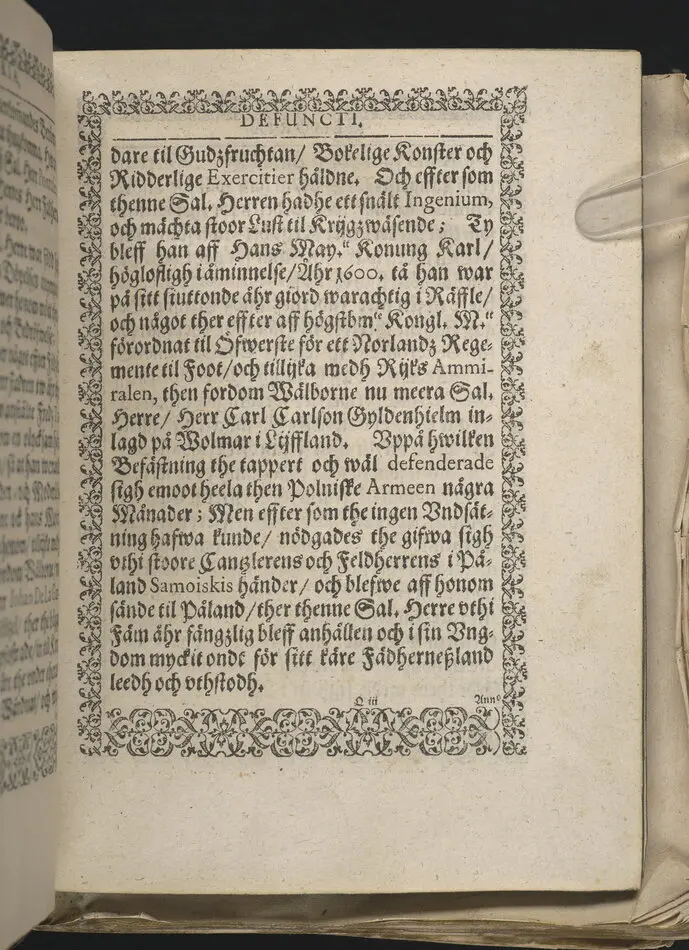 DEFUNCTI.
dare til Gudzfruchtan/ Bokelige Konster och
Ridderlige Exercitier håldne. Och effter som
thenne Sal. Herren hadhe ett snält Ingenium,
och mächta stoor Lust til Krijgzwäsende; Ty
bleff han aff Hans May.tt Konung Karl/
höglofligh i åminnelse/ Åhr 1600. tå han war
på sitt siuttonde åhr giord warachtig i Räffle/
och något ther effter aff högstbm.te Kongl. M.tt
förordnat til Öfwerste för ett Norlandz Rege-
mente til Foot/ och tillijka medh Rijks Ammi-
ralen, then fordom Wälborne nu meera Sal.
Herre/ Herr Carl Carlson Gyldenhielm in-
lagd på Wolmar i Lijffland. Vppå hwilken
Befästning the tappert och wäl defenderade
sigh emoot heela then Polniske Armeen några
Månader; Men effter som the ingen Vndsät-
ning hafwa kunde/ nödgades the gifwa sigh
vthi stoore Cantzlerens och Feldherrens i På-
land Samoiskis händer/ och blefwe aff honom
sände til Påland/ ther thenne Sal. Herre vthi
Fäm åhr fängzlig bleff anhållen och i sin Vng-
dom myckit ondt för sitt käre Fädherneßland
leedh och vthstodh.
Q iii
Anno